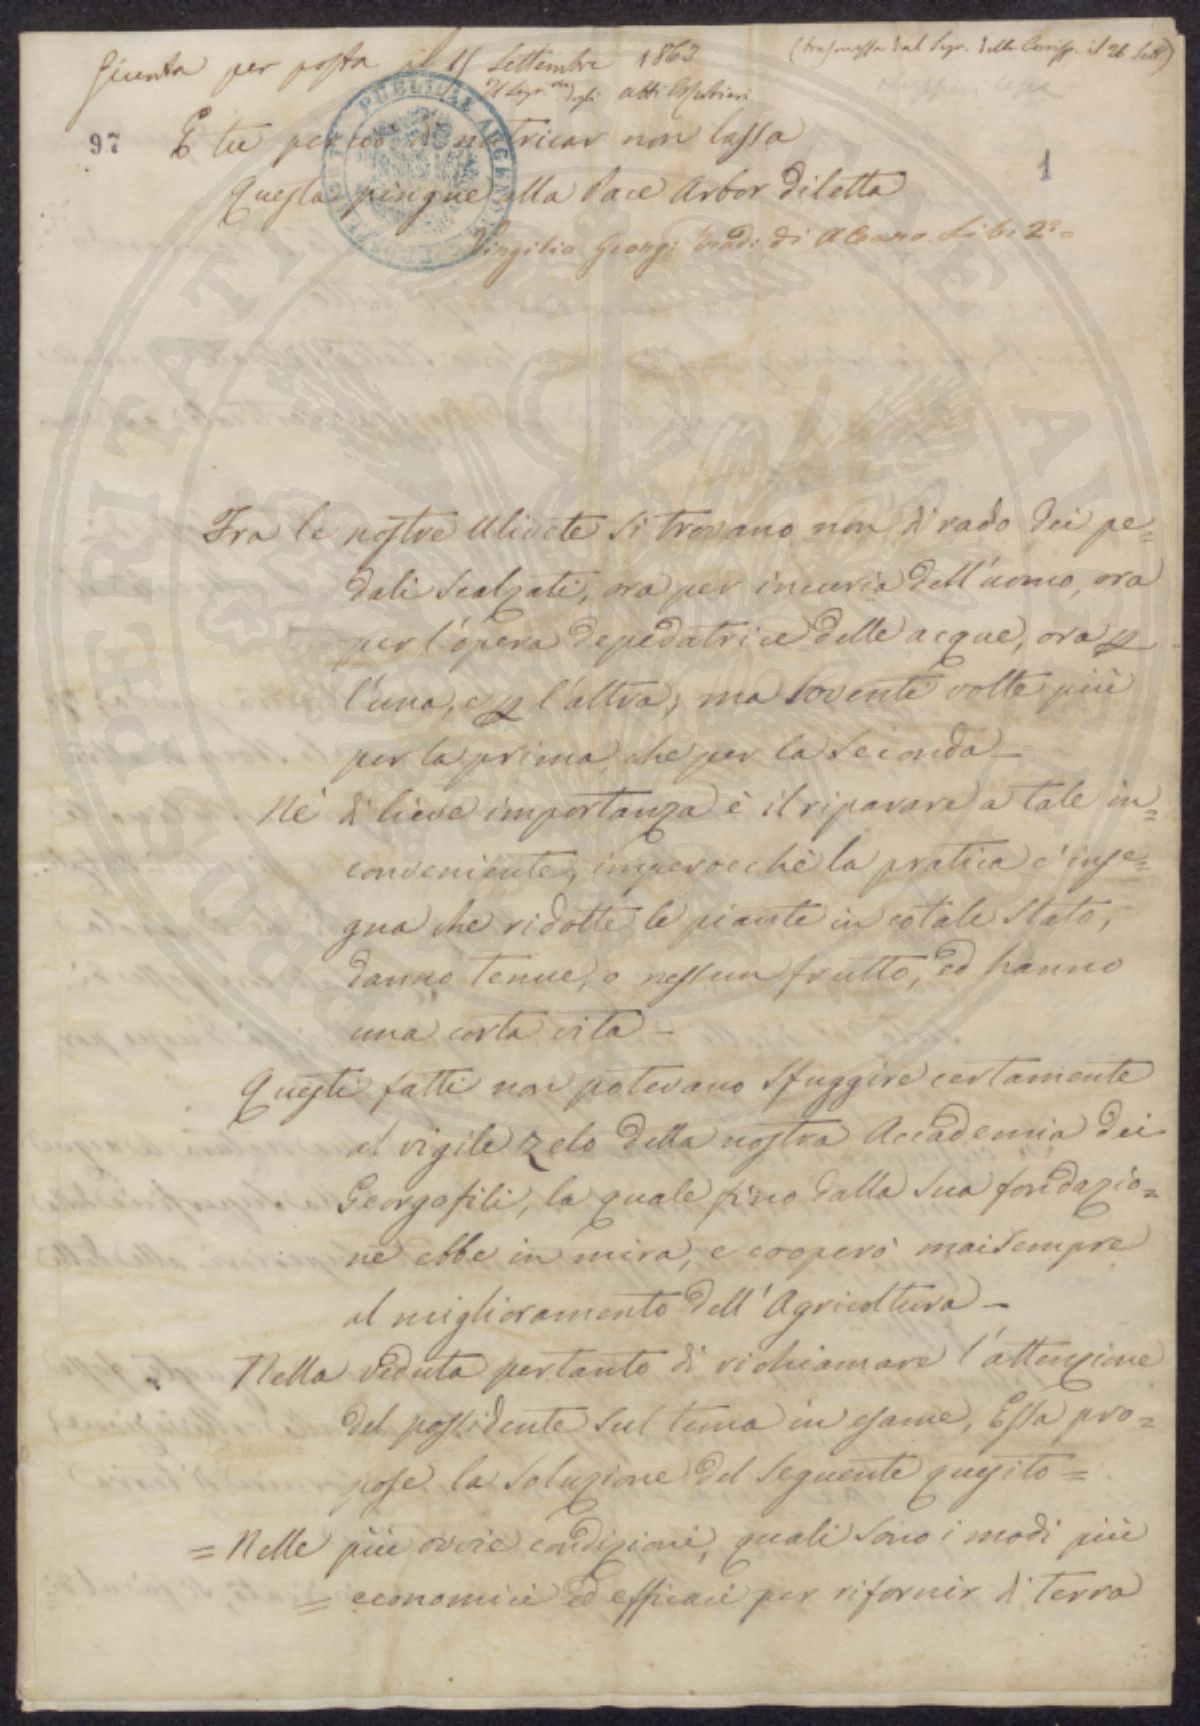 Giunta per posta il 15 Settembre 1863
(trasmessa dal Segr. delle Corrisp. il 26 Sett.)
Il Segr. degli atti
97
1
E tu perciò di nutricar non lassa
Questa pingue alla Pace Arbor diletta
Virgilio Georgi: Trad: di Lib: 2°=
Fra le nostre Ulivete si trovano non di rado dei pe=
dali scalzati, ora per incuria dell'uomo, ora
per l'opera depedatrice delle acque, ora p
l'una, e p l'altra; ma sovente volte più
per la prima, che per la seconda—
Nè di lieve importanza è il riparare a tale in=
conveniente, imperocchè la pratica c'inse=
gna che ridotte le piante in cotale stato,
danno tenue, o nessun frutto, ed hanno
una corta vita—
Questi fatti non potevano sfuggire certamente
al vigile zelo della nostra Accademia dei
Georgofili, la quale fino dalla sua fondazio=
ne ebbe in mira, e cooperò maisempre
al miglioramento dell'Agricoltura—
Nella veduta pertanto di richiamare l'attenzione
del possidente sul tema in esame, Essa pro=
pose la soluzione del seguente quesito=
=Nelle più ovvie condizioni, quali sono i modi più
= economici ed efficaci per rifornir di terra
PUBLICAE
PROSPERITATI